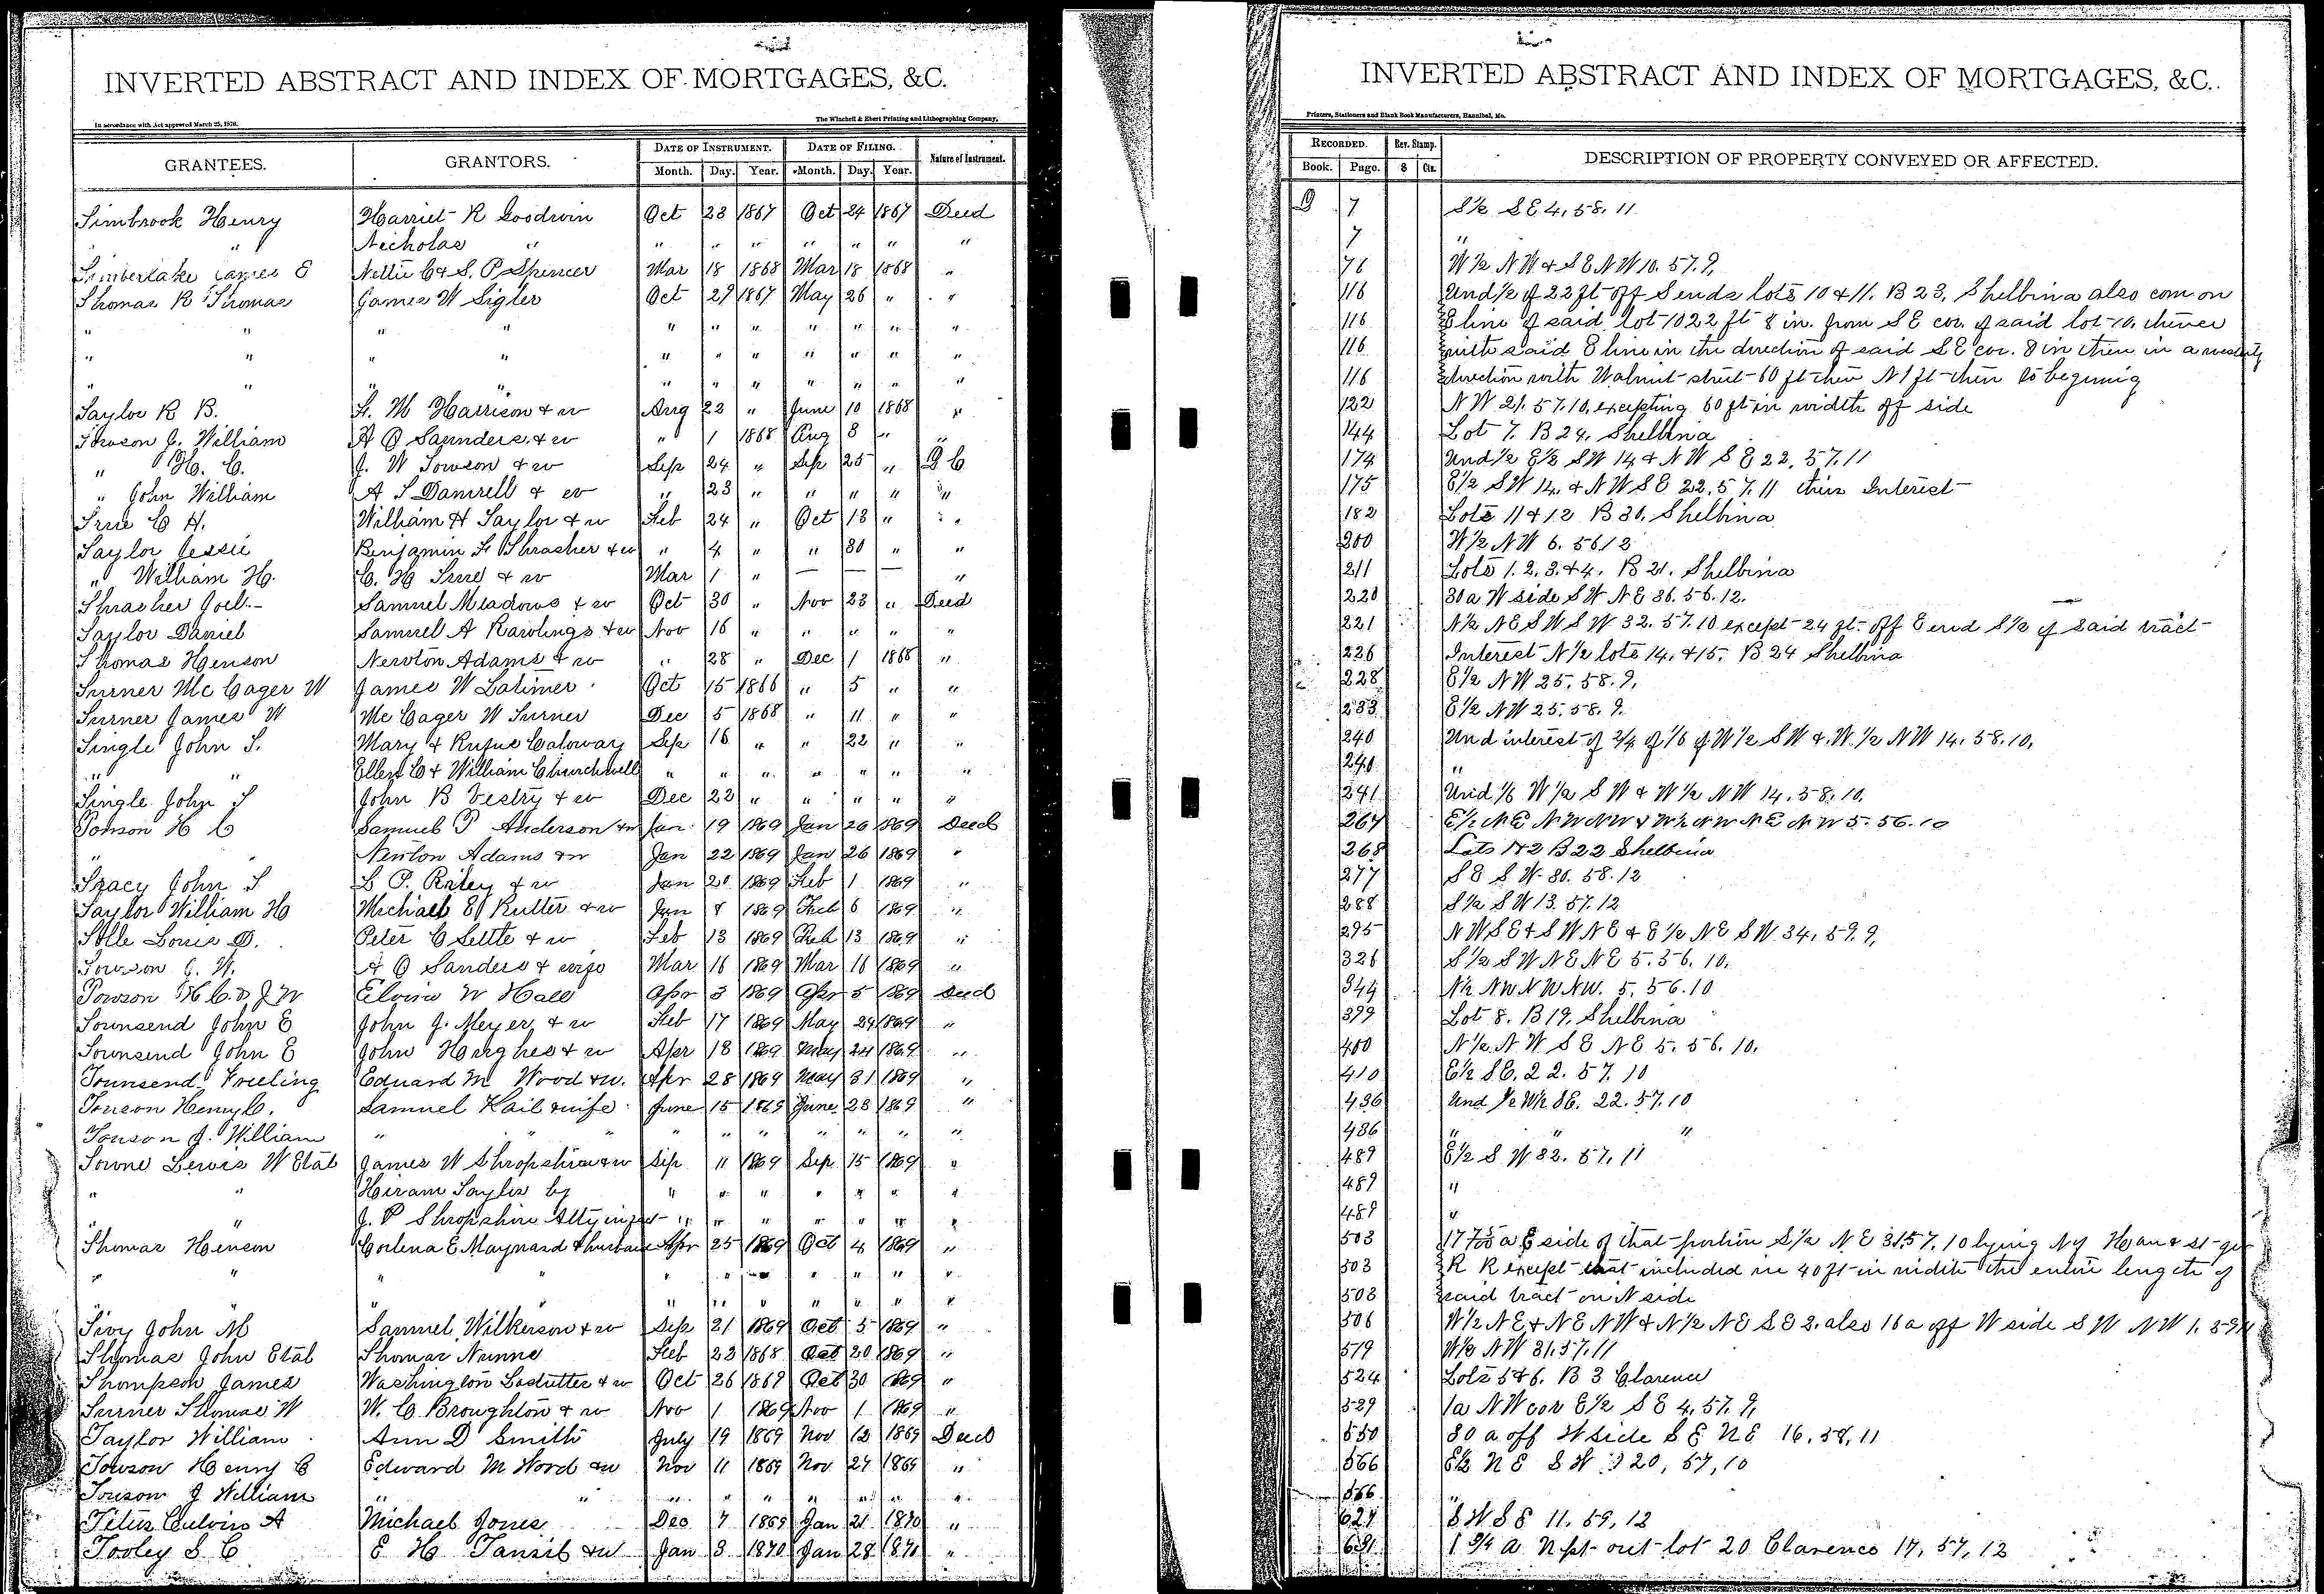 INVERTED ABSTRACT AND INDEX OF MORTGAGES, &C.
In accordance with Act approved March 25, 1870. The Winchell & Ebert Printing and Lithographing Company,
GRANTEES. GRANTORS. DATE OF INSTRUMENT. DATE OF FILING. Nature of Instrument.
Month. Day. Year. Month. Day. Year.
Timbrook Henry Harriet R Goodwin Oct 23 1867 Oct 24 1867 Deed
" Nicholas " " " " " " " "
Timberlake James E Nettie C & S. P. Spencer Mar 18 1868 Mar 18 1868 "
Thomas R Thomas James W Sigler Oct 29 1867 May 26 " "
" " " " " " " " " " "
" " " " " " " " " " "
" " " " " " " " " " "
Taylor R B. F. M Harrison & w Aug 22 " June 10 1868 "
Towson J. William A O Saunders & w " 1 1868 Aug 8 " "
" H. C. J. W Towson & w Sep 24 " Sep 25 " Q C
" John William A S Damrell & w " 23 " " " " "
True C H. William H Taylor & w Feb 24 " Oct 13 " "
Taylor Jessie Benjamin F Thrasher & w " 4 " " 30 " "
" William H. C. H True & w Mar 1 " — — — "
Thrasher Joel Samuel Meadows & w Oct 30 " Nov 23 " Deed
Taylor Daniel Samuel A Rawlings & w Nov 16 " " " " "
Thomas Henson Newton Adams & w " 28 " Dec 1 1868 "
Turner Mc Cager W James W Latimer Oct 15 1866 " 5 " "
Turner James W Mc Cager W Turner Dec 5 1868 " 11 " "
Tingle John T. Mary & Rufus Caloway Sep 16 " " 22 " "
" " Ellen C & William Churchwell " " " " " " "
Tingle John T John B Vestry & w Dec 22 " " " " "
Towson H C Samuel P Anderson & w Jan 19 1869 Jan 26 1869 Deed
" Newton Adams & w Jan 22 1869 Jan 26 1869 "
Tracy John T L P. Raley & w Jan 20 1869 Feb 1 1869 "
Taylor William H Michael E Rutter & w Jan 8 1869 Feb 6 1869 "
Tolle Louis D. Peter C Settle & w Feb 13 1869 Feb 13 1869 "
Towson J. W. A O Sanders & wife Mar 16 1869 Mar 16 1869 "
Towson H C. & J W Elvira W Hall Apr 3 1869 Apr 5 1869 Deed
Townsend John E John J. Meyer & w Feb 17 1869 May 24 1869 "
Townsend John E John Hughes & w Apr 18 1869 May 24 1869 "
Townsend Freeling Eduard M Wood & w. Apr 28 1869 May 31 1869 "
Towson Henry C. Samuel Hail & wife June 15 1869 June 23 1869 "
Towson J. William " " " " " " " " " "
Towne Lewis W Etal James W Shropshire & w Sep 11 1869 Sep 15 1869 "
" " Hiram Taylor by " " " " " " "
" " J. P Shropshire Atty in fact " " " " " " "
Thomas Henson Corlena E Maynard & husband Apr 25 1869 Oct 4 1869 "
" " " " " " " " " " "
" " " " " " " " " "
Tivy John M Samuel Wilkerson & w Sep 21 1869 Oct 5 1869 "
Thomas John Etal Thomas Nunne Feb 22 1868 Oct 20 1869 "
Thompson James Washington Ledutter & w Oct 26 1869 Oct 30 1869 "
Turner Thomas W W. C Broughton & w Nov 1 1869 Nov 1 1869 "
Taylor William Ann D Smith July 19 1869 Nov 12 1869 Deed
Towson Henry C Edward M Word & w Nov 11 1869 Nov 27 1869 "
Towson J William " " " " " " " " "
Titus Culvin A Michael Jones Dec 7 1869 Jan 21 1870 "
Tooley S C E H Tansil & w Jan 3 1870 Jan 28 1870 "
INVERTED ABSTRACT AND INDEX OF MORTGAGES, &C.
Printers, Stationers and Blank Book Manufacturers, Hannibal, Mo.
RECORDED. Rev. Stamp. DESCRIPTION OF PROPERTY CONVEYED OR AFFECTED.
Book. Page. $ Cts.
7 S½ SE 4, 58, 11
7 "
76 W½ NW & SE NW 10. 57. 9,
116 Und ½ of 22 ft off S ends lots 10 & 11. B 23, Shelbina also com on
116 E line of said lot 10 22 ft 8 in. from S E cor. of said lot 10. thence
116 with said E line in the direction of said S E cor. 8 in then in a westerly
116 direction with Walnut street 60 ft then N 1 ft then to beginning
122 NW 21. 57. 10, excepting 60 ft in width off side
144 Lot 7. B 24. Shelbina
174 Und ½ E½ SW 14 & NW SE 22, 57. 11
175 E½ SW 14. & NW SE 22. 57. 11 their Interest
182 Lots 11 & 12 B 30. Shelbina
200 W½ NW 6. 56 12
211 Lots 1. 2. 3. & 4. B 21. Shelbina
220 30 a W side SW NE 36. 56. 12.
221 N½ NE SW SW 32. 57. 10 except 24 ft. off E end S½ of said tract
226 Interest N½ lots 14. & 15. B 24 Shelbina
228 E½ NW 25. 58. 9,
233 E½ NW 25. 58. 9.
240 Und interest of 2/4 of 1/6 of W½ SW & W. ½ NW 14. 58. 10,
240 "
241 Und 1/6 W½ SW & W½ NW 14. 58. 10.
267 E½ NE NW NW & W½ NW NE NW 5. 56. 10
268 Lots 1 & 2 B 22 Shelbina
277 SE SW 30. 58. 12
288 S½ SW 13. 57. 12
295 NW SE & SW NE & E½ NE SW 34, 59. 9,
326 S½ SW NE NE 5. 56. 10.
344 N½ NW NW NW. 5. 56. 10
399 Lot 8. B 19, Shelbina
400 N½ NW SE NE 5. 56. 10.
410 E½ SE. 22. 57. 10
436 Und ½ W½ SE. 22. 57. 10
436 " " "
489 E½ SW 32. 57, 11
489 "
489 "
503 a E side of that portion S½ NE 31. 57. 10 lying N of Han & St
503 R R except that included in 40 ft in width the entire length of
503 said tract on N side
506 W½ NE & NE NW & N½ NE SE 2. also 16 a off W side SW NW 1.
519 W½ NW 31. 57. 11
524 Lots 5 & 6. B 3 Clarence
529 1 a NW cor E½ SE 4. 57. 9,
550 30 a off W side SE NE 16, 58, 11
566 E½ NE SW 20, 57, 10
566 "
627 SW SE 11. 59, 12
631 1 3/4 a N pt out lot 20 Clarence 17, 57, 12